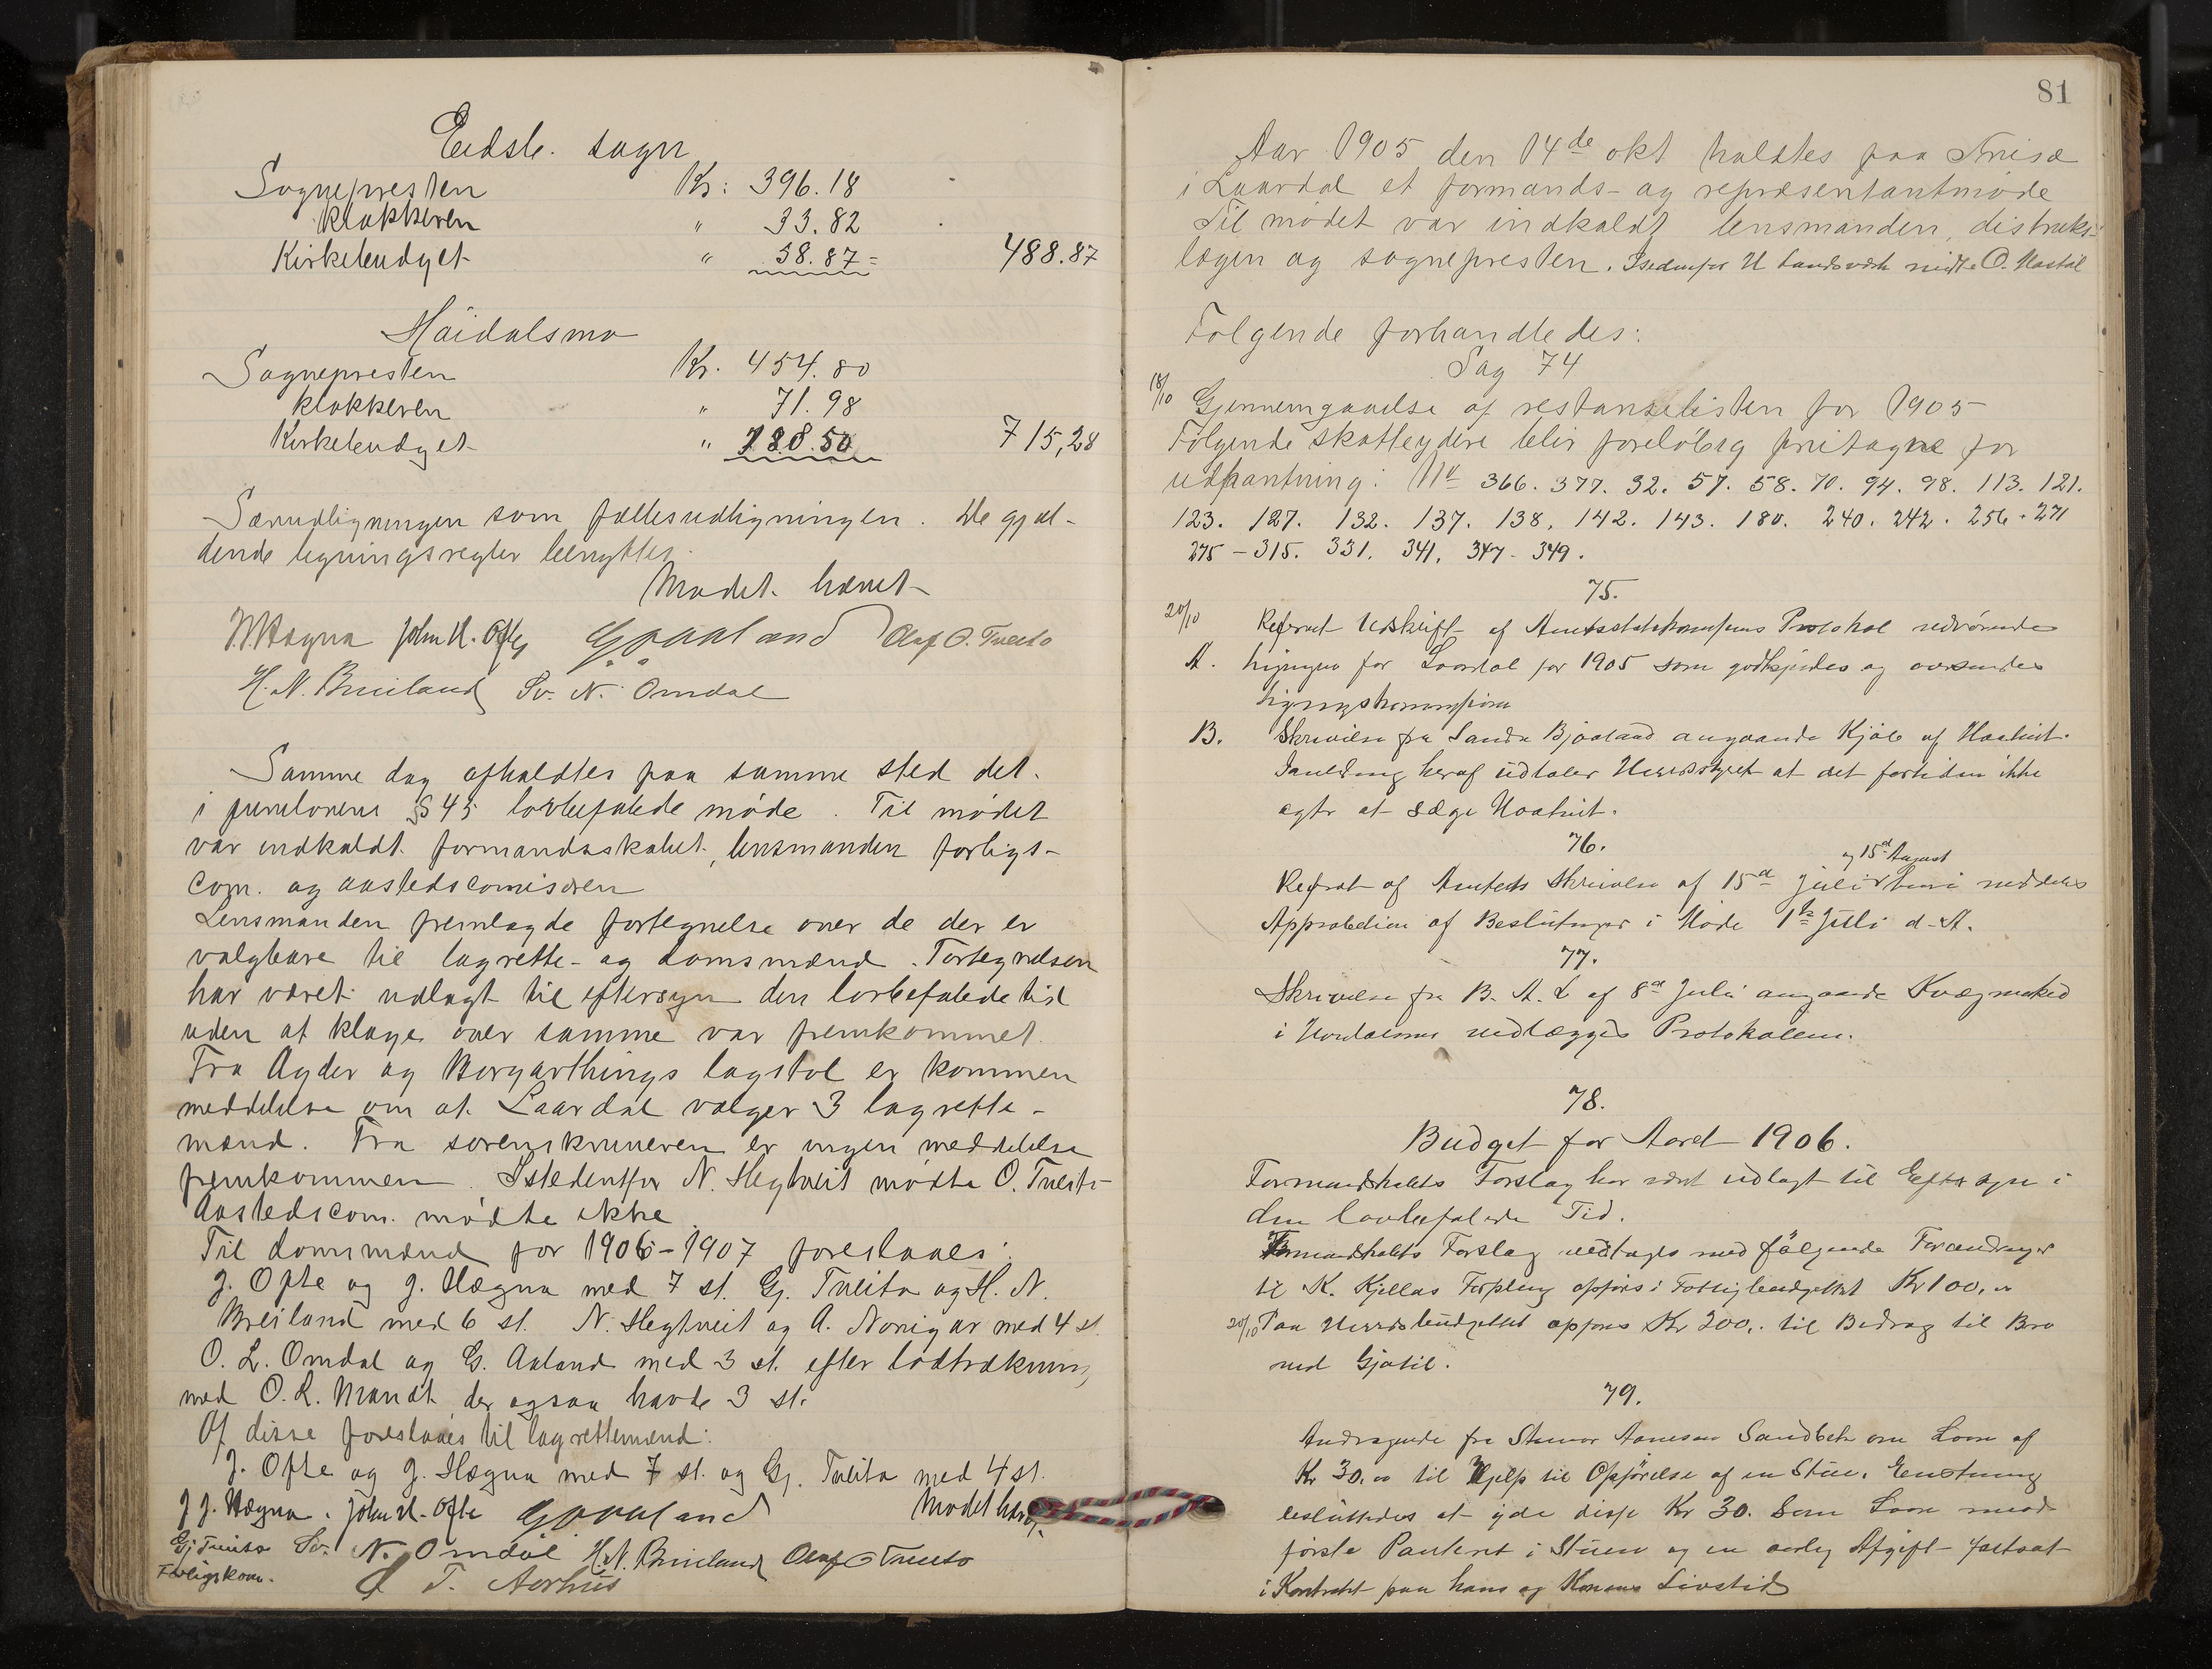 Eidsb. sogn
Sognepresten Kr: 396.18
klokkeren " 33.82
Kirkebudget " 58.87= 488.87
Høidalsmo
Sognepresten Kr. 454.80
klokkeren " 71.98
Kirkebudget " 188.50 715,28
Særudligningen som fællesudligningen. De gjæl-
dende ligningsregler benyttes.
Mødet hævet
J. J. Hægna John H. Ofte G Aaland Olaf O. Tveito
H. N. Breiland Sv. N. Omdal
Samme dag afholdtes paa samme sted det
i juryloven § 45 lovbefalede møde. Til mødet
var indkaldt formandsskabet, lensmanden forligs-
com. og aastedscomisæren
Lensmanden fremlagde fortegnelse over de der er
valgbare til lagrette- og domsmænd. Fortegnelsen
har været udlagt til eftersyn den lovbefalede tid
uden at klage over samme var fremkommet.
Fra Agder og Borgarthings lagstol er kommen
meddelelse om at Laardal vælger 3 lagrette-
mænd. Fra sorenskriveren er ingen meddelelse
fremkommen. Istedentfor N. Hegtveit mødte O. Tveito
Aastedscom. mødte ikke.
Til domsmænd for 1906-1907 foreslaaes:
J. Ofte og J. Hægna med 7 st. Gj. Tveito og H. N.
Breiland med 6 st. N. Hegtveit og A. Norigar med 4 st.
O. L. Omdal og G. Aaland med 3 st. efter lodtrækning
med O. L. Mandt der ogsaa havde 3 st.
Af disse foreslaaes til lagrettemænd:
J. Ofte og J. Hægna med 7 st. og Gj. Tveito med 4 st.
Mødet hævet
J J. Hægna. John H. Ofte G Aaland
Gj Tveito Sv. N. Omdal H. N. Breiland Olaf O Tveito
Forligskom. T. Aarhus
81
Aar 1905 den 14de okt holdtes paa Triset
i Laardal et formands- og repræsentantmøde
Til mødet var indkaldt lensmanden, distrikts-
lægen og sognepresten. Istedenfor H mødte O.
Følgende forhandledes:
Sag 74
18/10 Gjennemgaaelse af restanselisten for 1905
Følgende skatteydere blir foreløbig fritagne for
udpantning: No 366. 377. 32. 57. 58. 70. 94. 98. 113. 121.
123. 127. 132. 137. 138. 142. 143. 180. 240. 242. 256. 271
275 - 315. 331. 341. 347. 349.
75.
20/10 Referat Udskrift af Amtsskatkommissions Protokol vedrørende
A. Ligningen for Laardal for 1905 som godkjendes og oversendes
Ligningskommission
B. Skrivelse fra Sande Bjaaland angaaende Kjøb af
Ianledning heraf udtaler Herredsstyret at det fortiden ikke
agter at sælge
76.
og 15de August
Referat af Amtets Skrivelse af 15de juli hvori meddeles
Approbation af Beslutninger i Møde 1ste Juli d. A.
77.
Skrivelse fra B. A. L af 8de Juli angaaende Kvægmarked
i vedlægges Protokollen.
78.
Budget for Aaret 1906.
Formandskabets Forslag har været udlagt til Eftersyn i
den lovbefalede Tid.
Formandskabets Forslag vedtages med følgende Forandringer
til K. Kjellas opføres i Fattigbudgettet Kr 100,00
20/10 Paa Herredsbudgettet opføres Kr 200,- til Bidrag til Bro
ved
79.
Andragende fra Steinar Aanesen Sandbæk om Laan af
Kr 30.00 til Hjelp til Opførelse af en Stue. Enstemmig
besluttedes at yde disse Kr 30. som Laan mod
første Panteret i Stuen og en aarlig Afgift fastsat
i Kontrakt paa hans og Konens Livstid